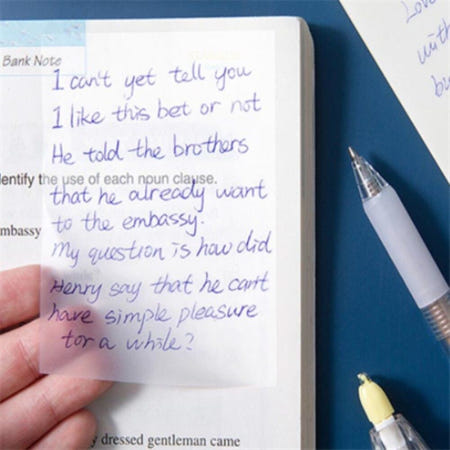 Bank Note
I can't yet tell you
I like this bet or not
He told the brothers
entify the use of each noun clause.
that he already want
mbassy
to the embassy.
My question is how did
Henry say that he can't
have simple pleasure
for a while?
y dressed gentleman came
Love
with
bu